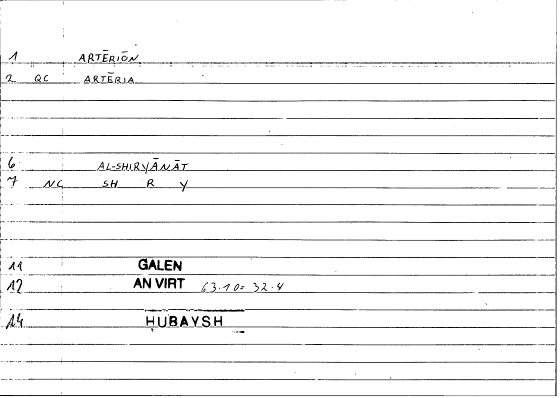 1 ARTĒRIŌN
2 QC ARTĒRIA
6 AL-SHIRYĀNĀT
7 NC SH R Y
11 GALEN
12 AN VIRT 63.10= 32.4
14 HUBAYSH